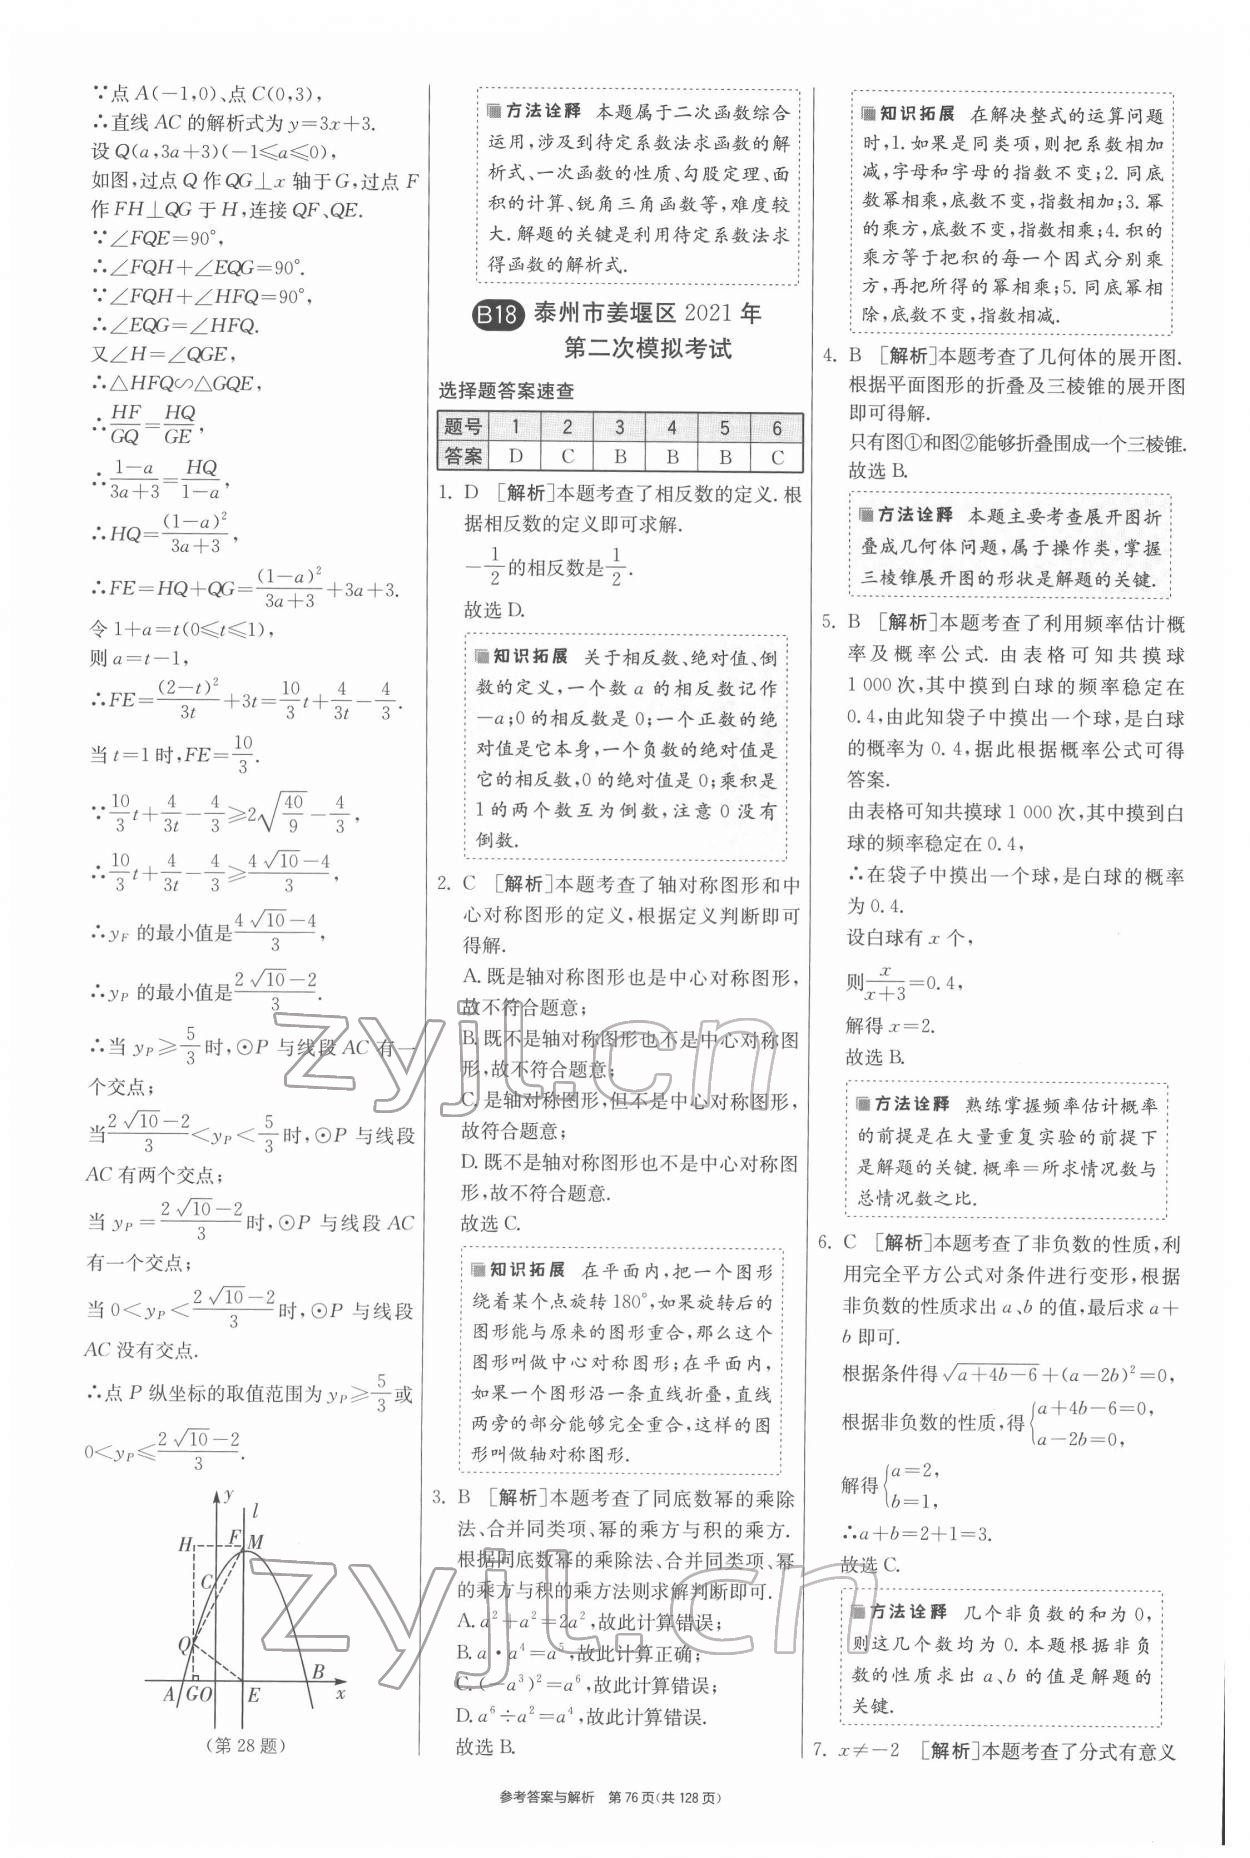 ∵点 A(-1,0)、点 C(0,3),
∴直线 AC 的解析式为 y=3x+3.
设 Q(a,3a+3)(-1≤a≤0),
如图,过点 Q 作 QG⊥x 轴于 G,过点 F
作 FH⊥QG 于 H,连接 QF、QE.
∵∠FQE=90°,
∴∠FQH+∠EQG=90°.
∵∠FQH+∠HFQ=90°,
∴∠EQG=∠HFQ.
又∠H=∠QGE,
∴△HFQ∽△GQE,
∴HF/GQ=HQ/GE,
∴(1-a)/(3a+3)=HQ/(1-a),
∴HQ=(1-a)²/(3a+3),
∴FE=HQ+QG=(1-a)²/(3a+3)+3a+3.
令 1+a=t(0≤t≤1),
则 a=t-1,
∴FE=(2-t)²/3t+3t=10/3 t+4/3t-4/3.
当 t=1 时,FE=10/3.
∵10/3 t+4/3t-4/3≥2√(40/9)-4/3,
∴10/3 t+4/3t-4/3≥(4√10-4)/3,
∴y_F 的最小值是(4√10-4)/3,
∴y_P 的最小值是(2√10-2)/3.
∴当 y_P≥5/3时,⊙P 与线段 AC 有一
个交点;
当(2√10-2)/3<y_P<5/3时,⊙P 与线段
AC 有两个交点;
当 y_P=(2√10-2)/3时,⊙P 与线段 AC
有一个交点;
当 0<y_P<(2√10-2)/3时,⊙P 与线段
AC 没有交点.
∴点 P 纵坐标的取值范围为 y_P≥5/3或
0<y_P≤(2√10-2)/3.
y
l
H
F
M
C
Q
B
A
G
O
E
x
(第 28 题)
方法诠释 本题属于二次函数综合
运用,涉及到待定系数法求函数的解
析式、一次函数的性质、勾股定理、面
积的计算、锐角三角函数等,难度较
大.解题的关键是利用待定系数法求
得函数的解析式.
B18 泰州市姜堰区 2021 年
第二次模拟考试
选择题答案速查
题号 1 2 3 4 5 6
答案 D C B B B C
1. D [解析]本题考查了相反数的定义.根
据相反数的定义即可求解.
-1/2的相反数是1/2.
故选 D.
知识拓展 关于相反数、绝对值、倒
数的定义,一个数 a 的相反数记作
-a;0 的相反数是 0;一个正数的绝
对值是它本身,一个负数的绝对值是
它的相反数,0 的绝对值是 0;乘积是
1 的两个数互为倒数,注意 0 没有
倒数.
2. C [解析]本题考查了轴对称图形和中
心对称图形的定义,根据定义判断即可
得解.
A.既是轴对称图形也是中心对称图形,
故不符合题意;
B.既不是轴对称图形也不是中心对称图
形,故不符合题意;
C.是轴对称图形,但不是中心对称图形,
故符合题意;
D.既不是轴对称图形也不是中心对称图
形,故不符合题意.
故选 C.
知识拓展 在平面内,把一个图形
绕着某个点旋转 180°,如果旋转后的
图形能与原来的图形重合,那么这个
图形叫做中心对称图形;在平面内,
如果一个图形沿一条直线折叠,直线
两旁的部分能够完全重合,这样的图
形叫做轴对称图形.
3. B [解析]本题考查了同底数幂的乘除
法、合并同类项、幂的乘方与积的乘方.
根据同底数幂的乘除法、合并同类项、幂
的乘方与积的乘方法则求解判断即可.
A.a²+a²=2a²,故此计算错误;
B.a·a⁴=a⁵,故此计算正确;
C.(-a³)²=a⁶,故此计算错误;
D.a⁶÷a²=a⁴,故此计算错误.
故选 B.
知识拓展 在解决整式的运算问题
时,1.如果是同类项,则把系数相加
减,字母和字母的指数不变;2.同底
数幂相乘,底数不变,指数相加;3.幂
的乘方,底数不变,指数相乘;4.积的
乘方等于把积的每一个因式分别乘
方,再把所得的幂相乘;5.同底幂相
除,底数不变,指数相减.
4. B [解析]本题考查了几何体的展开图.
根据平面图形的折叠及三棱锥的展开图
即可得解.
只有图①和图②能够折叠围成一个三棱锥.
故选 B.
方法诠释 本题主要考查展开图折
叠成几何体问题,属于操作类,掌握
三棱锥展开图的形状是解题的关键.
5. B [解析]本题考查了利用频率估计概
率及概率公式.由表格可知共摸球
1 000 次,其中摸到白球的频率稳定在
0.4,由此知袋子中摸出一个球,是白球
的概率为 0.4,据此根据概率公式可得
答案.
由表格可知共摸球 1 000 次,其中摸到白
球的频率稳定在 0.4,
∴在袋子中摸出一个球,是白球的概率
为 0.4.
设白球有 x 个,
则x/(x+3)=0.4,
解得 x=2.
故选 B.
方法诠释 熟练掌握频率估计概率
的前提是在大量重复实验的前提下
是解题的关键.概率=所求情况数与
总情况数之比.
6. C [解析]本题考查了非负数的性质,利
用完全平方公式对条件进行变形,根据
非负数的性质求出 a、b 的值,最后求 a+
b 即可.
根据条件得√(a+4b-6)+(a-2b)²=0,
根据非负数的性质,得{a+4b-6=0,
a-2b=0,
解得{a=2,
b=1,
∴a+b=2+1=3.
故选 C.
方法诠释 几个非负数的和为 0,
则这几个数均为 0.本题根据非负
数的性质求出 a、b 的值是解题的
关键.
7. x≠-2 [解析]本题考查了分式有意义
参考答案与解析 第 76 页(共 128 页)
zyjl.cn
zyjl.cn